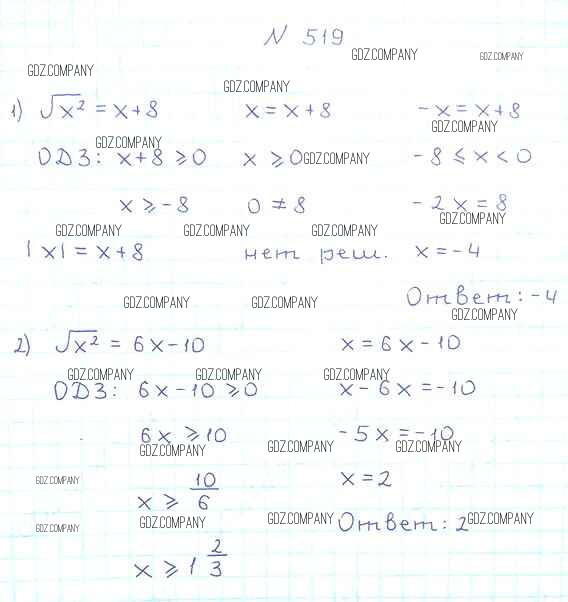 N 519
GDZ.COMPANY GDZ.COMPANY
GDZ.COMPANY
GDZ.COMPANY
1) √x² = x+8 x = x+8 -x = x+8
GDZ.COMPANY
GDZ.COMPANY
ОДЗ: x+8 ⩾ 0 x ⩾ 0 GDZ.COMPANY -8 ⩽ x < 0
x ⩾ -8 0 ≠ 8 -2x = 8
GDZ.COMPANY
GDZ.COMPANY GDZ.COMPANY GDZ.COMPANY
|x| = x+8 нет реш. x = -4
GDZ.COMPANY GDZ.COMPANY Ответ: -4
GDZ.COMPANY
2) √x² = 6x-10 x = 6x-10
GDZ.COMPANY GDZ.COMPANY GDZ.COMPANY
ОДЗ: 6x-10 ⩾ 0 x-6x = -10
6x ⩾ 10 -5x = -10
GDZ.COMPANY GDZ.COMPANY GDZ.COMPANY
GDZ.COMPANY x ⩾ 10/6 x = 2
GDZ.COMPANY GDZ.COMPANY GDZ.COMPANY Ответ: 2 GDZ.COMPANY
x ⩾ 1 2/3